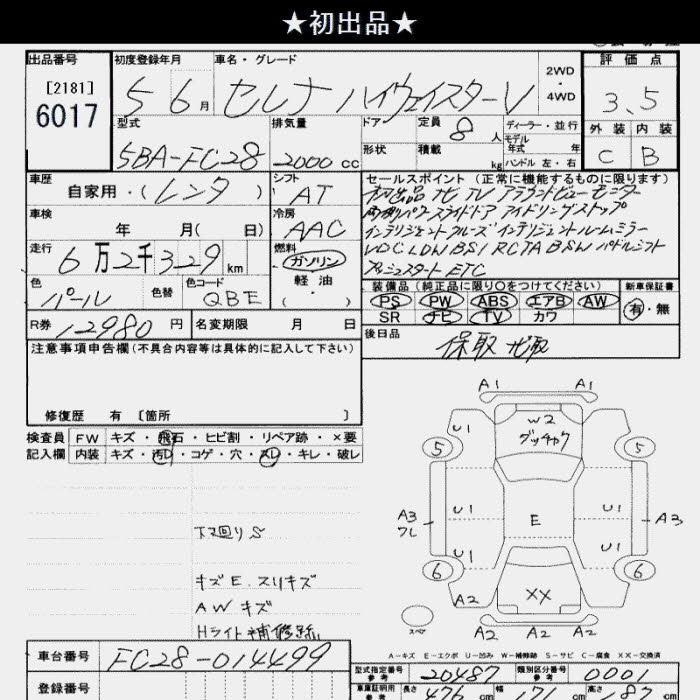 ★初出品★
出品番号
[2181]
6017
初度登録年月
5 6月
車名・グレード
セレナ ハイウェイスターV
2WD
・
4WD
評価点
3.5
外装 内装
C B
型式
5BA-FC28
排気量
2000 cc
ドア
形状
定員
8 人
積載
kg
ディーラー・並行
モデル年式 年
ハンドル 左・右
車歴
自家用・(レンタ)
シフト
AT
車検
年 月(日)
冷房
AAC
走行
6万2千329km
燃料
ガソリン
軽油
・
( )
色
パール
色替
色コード
QBE
R券 12980 円
名変期限 月 日
セールスポイント(正常に機能するものに限ります)
初出品 ナビ TV アラウンドビューモニター
両側パワースライドドア アイドリングストップ
インテリジェントクルーズ インテリジェントルームミラー
VDC LDW BSI RCTA BSW パドルシフト
プッシュスタート ETC
装備品(純正品に限り○をつけてください)
PS PW ABS エアB AW
SR ナビ TV カワ
新車保証書
有・無
後日品
保取 ナビ取
注意事項申告欄(不具合内容等は具体的に記入して下さい)
修復歴 有〔箇所 〕
検査員
記入欄
FW キズ・飛石・ヒビ割・リペア跡・×要
内装 キズ・汚レ・コゲ・穴・スレ・キレ・破レ
下マ回りS
キズE.スリキズ
AWキズ
Hライト補修跡
A1 A1
W2
グッチャク
5 5
U1 U1
A3
フレ
E
A3
U1 U1
6 6
XX
A2 A2
スペア
A2 A2 A2
A-キズ E-エクボ U-凹み W-補修跡 S-サビ C-腐食 XX-交換済
車台番号 FC28-014499
登録番号
型式指定番号
参考
20487
類別区分番号
参考
0001
車庫証明用
参考
長さ 476 cm
幅 171 cm
高さ 187 cm